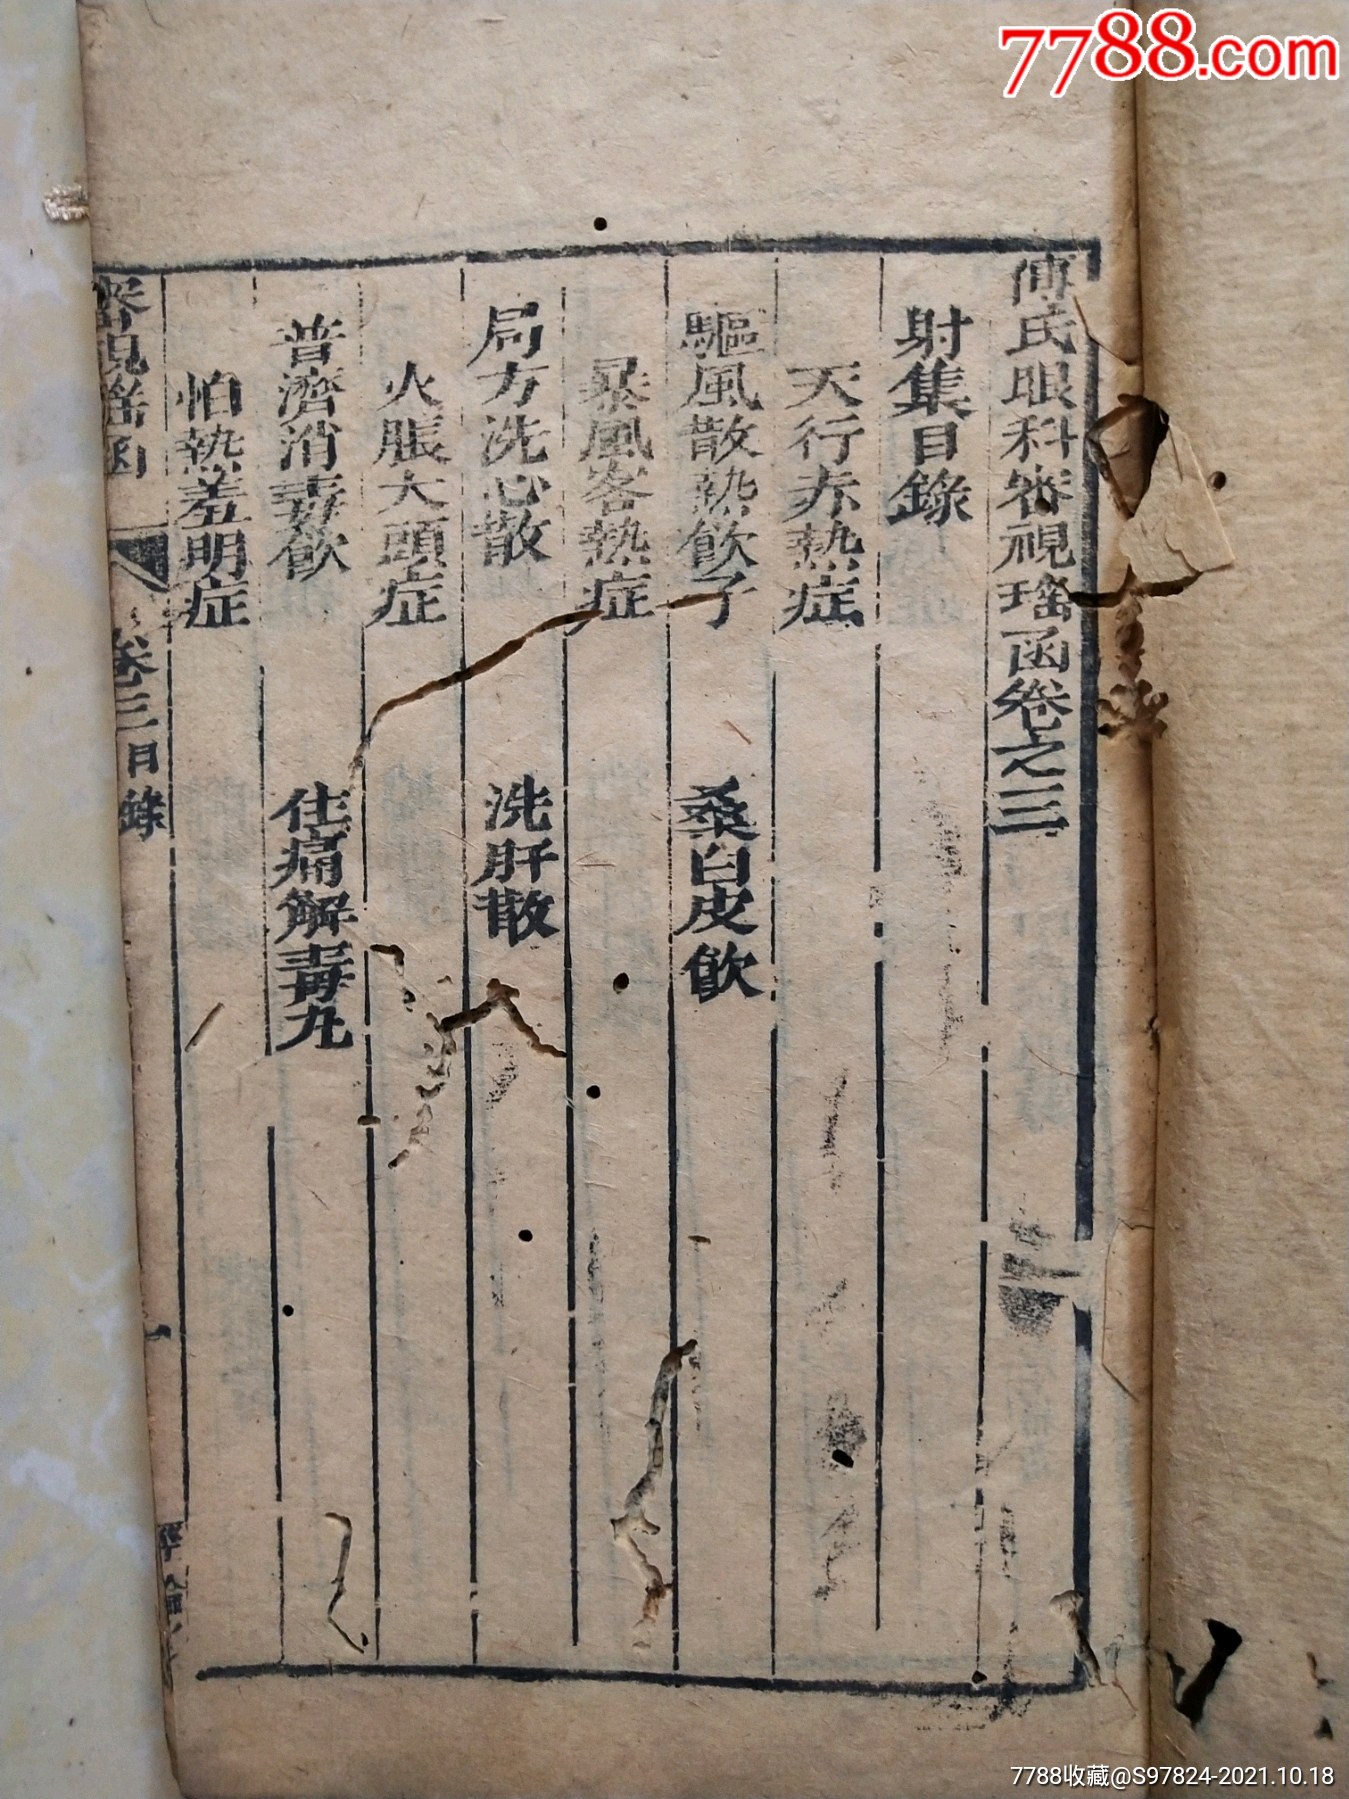 7788.com
傅氏眼科審視瑤函卷之三
射集目錄
天行赤熱症
驅風散熱飲子 桑白皮飲
暴風客熱症
局方洗心散 洗肝散
火脹大頭症
普濟消毒飲 住痛解毒丸
怕熱羞明症
審視瑤函 卷三目錄
7788收藏@S97824-2021.10.18